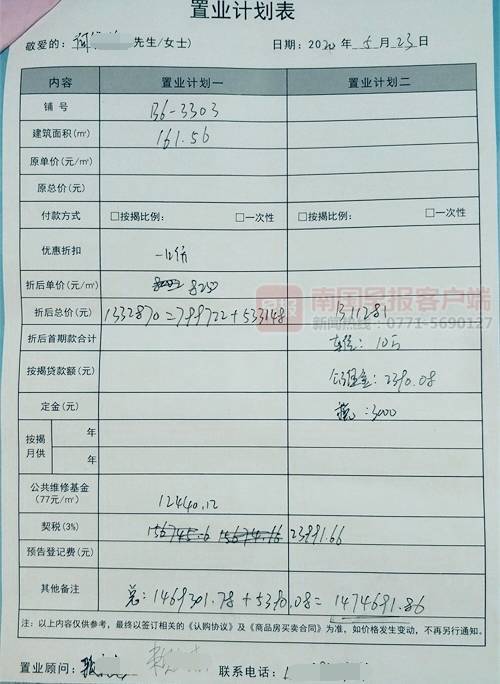 置业计划表
敬爱的: 先生/女士) 日期: 2020 年 5 月 23 日
内容 置业计划一 置业计划二
铺号 B6-3303
建筑面积(㎡) 161.56
原单价(元/㎡)
原总价(元)
付款方式 □按揭比例: □一次性 □按揭比例: □一次性
优惠折扣
折后单价(元/㎡) 8250
南国早报客户端
新闻热线:0771-5690127
折后总价(元) 1332870=799722+533148 B11281
折后首期款合计 车位: 10万
按揭贷款额(元) 公证金: 2390.08
定金(元) :3000
按揭月供 年
年
公共维修基金(77元/㎡) 12440.12
契税(3%) 23991.66
预告登记费(元)
其他备注 总: 1469301.78+5390.08=1474691.86
注:以上内容仅供参考,最终以签订相关的《认购协议》及《商品房买卖合同》为准,如价格发生变动,不再另行通知。
置业顾问: 联系电话: